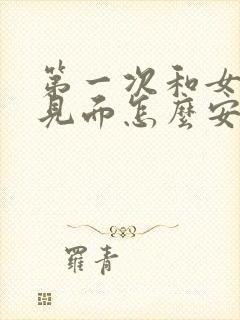 第一次和女
見面怎麼安
羅青